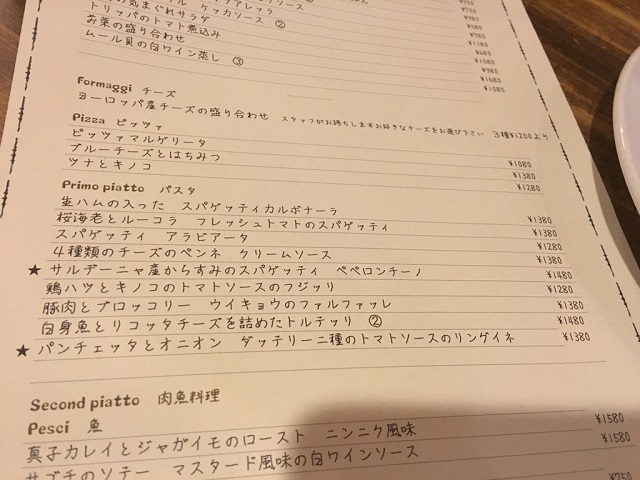 ¥700
お気まぐれサラダ ¥980
トリッパのトマト煮込み
お菜の盛り合わせ ¥1180
ムール貝の白ワイン蒸し ③
¥980
¥1680
¥1080
Formaggi チーズ
ヨーロッパ産チーズの盛り合わせ スタッフがお持ちしますお好きなチーズをお選び下さい 3種¥1200より
Pizza ピッツァ
ピッツァマルゲリータ ¥1080
ブルーチーズとはちみつ ¥1380
ツナとキノコ ¥1280
Primo piatto パスタ
生ハムの入った スパゲッティカルボナーラ ¥1380
桜海老とルーコラ フレッシュトマトのスパゲッティ ¥1380
スパゲッティ アラビアータ ¥1280
4種類のチーズのペンネ クリームソース ¥1380
★ サルデーニャ産からすみのスパゲッティ ペペロンチーノ ¥1480
鶏ハツとキノコのトマトソースのフジッリ ¥1280
豚肉とブロッコリー ウイキョウのファルファッレ ¥1380
白身魚とリコッタチーズを詰めたトルテッリ ② ¥1480
★ パンチェッタとオニオン ダッテリーニ種のトマトソースのリングイネ ¥1380
Second piatto 肉魚料理
Pesci 魚
真子カレイとジャガイモのロースト ニンニク風味 ¥1580
サゴチのソテー マスタード風味の白ワインソース ¥1580